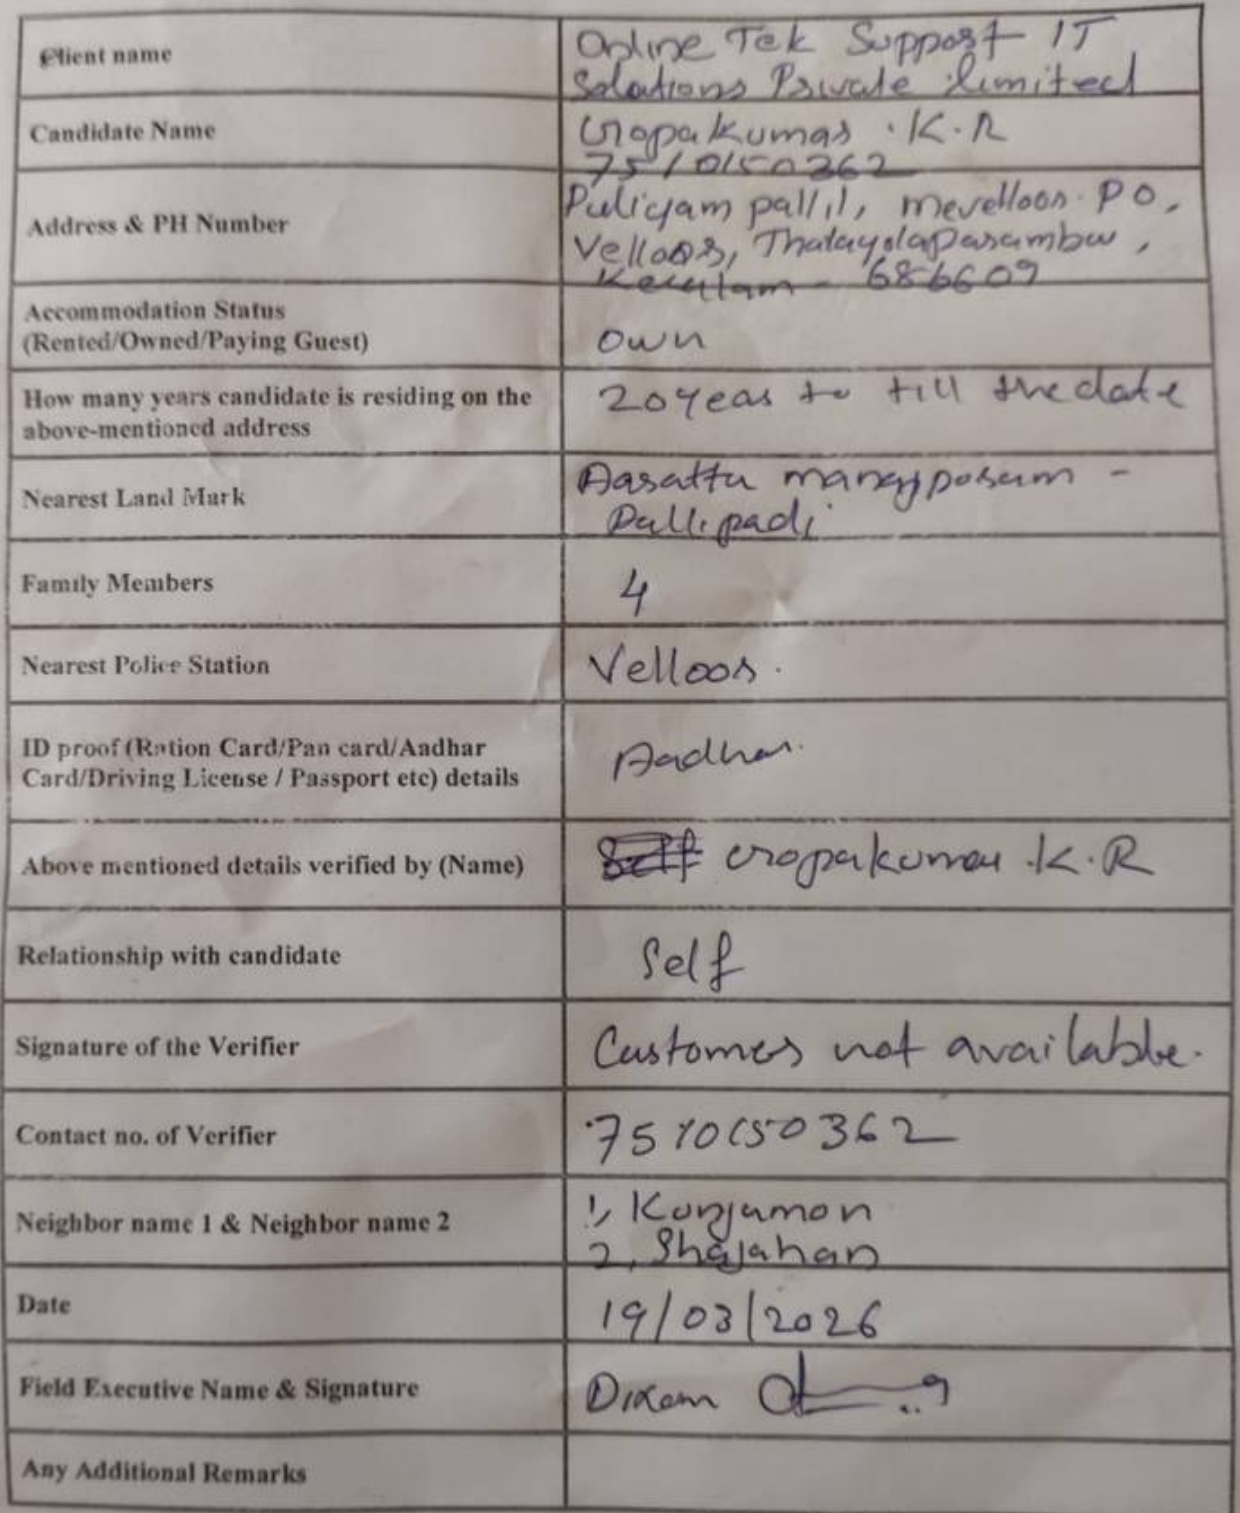 Client name
Online Tek Support IT
Solutions Private limited
Candidate Name
Gopakumar . K. R
7510150362
Address & PH Number
Puliyampallil, mevelloor. PO,
Velloor, Thalayolaparambu,
Keralam - 686609
Accommodation Status
(Rented/Owned/Paying Guest)
own
How many years candidate is residing on the
above-mentioned address
20 yeas to till the date
Nearest Land Mark
Pallipadi
Family Members
4
Nearest Police Station
Velloor.
ID proof (Ration Card/Pan card/Aadhar
Card/Driving License / Passport etc) details
Aadhar.
Above mentioned details verified by (Name)
Self Gopakumar .K.R
Relationship with candidate
Self
Signature of the Verifier
Customer not available.
Contact no. of Verifier
7510150362
Neighbor name 1 & Neighbor name 2
1, Kunjumon
2, Shajahan
Date
19/03/2026
Field Executive Name & Signature
Any Additional Remarks